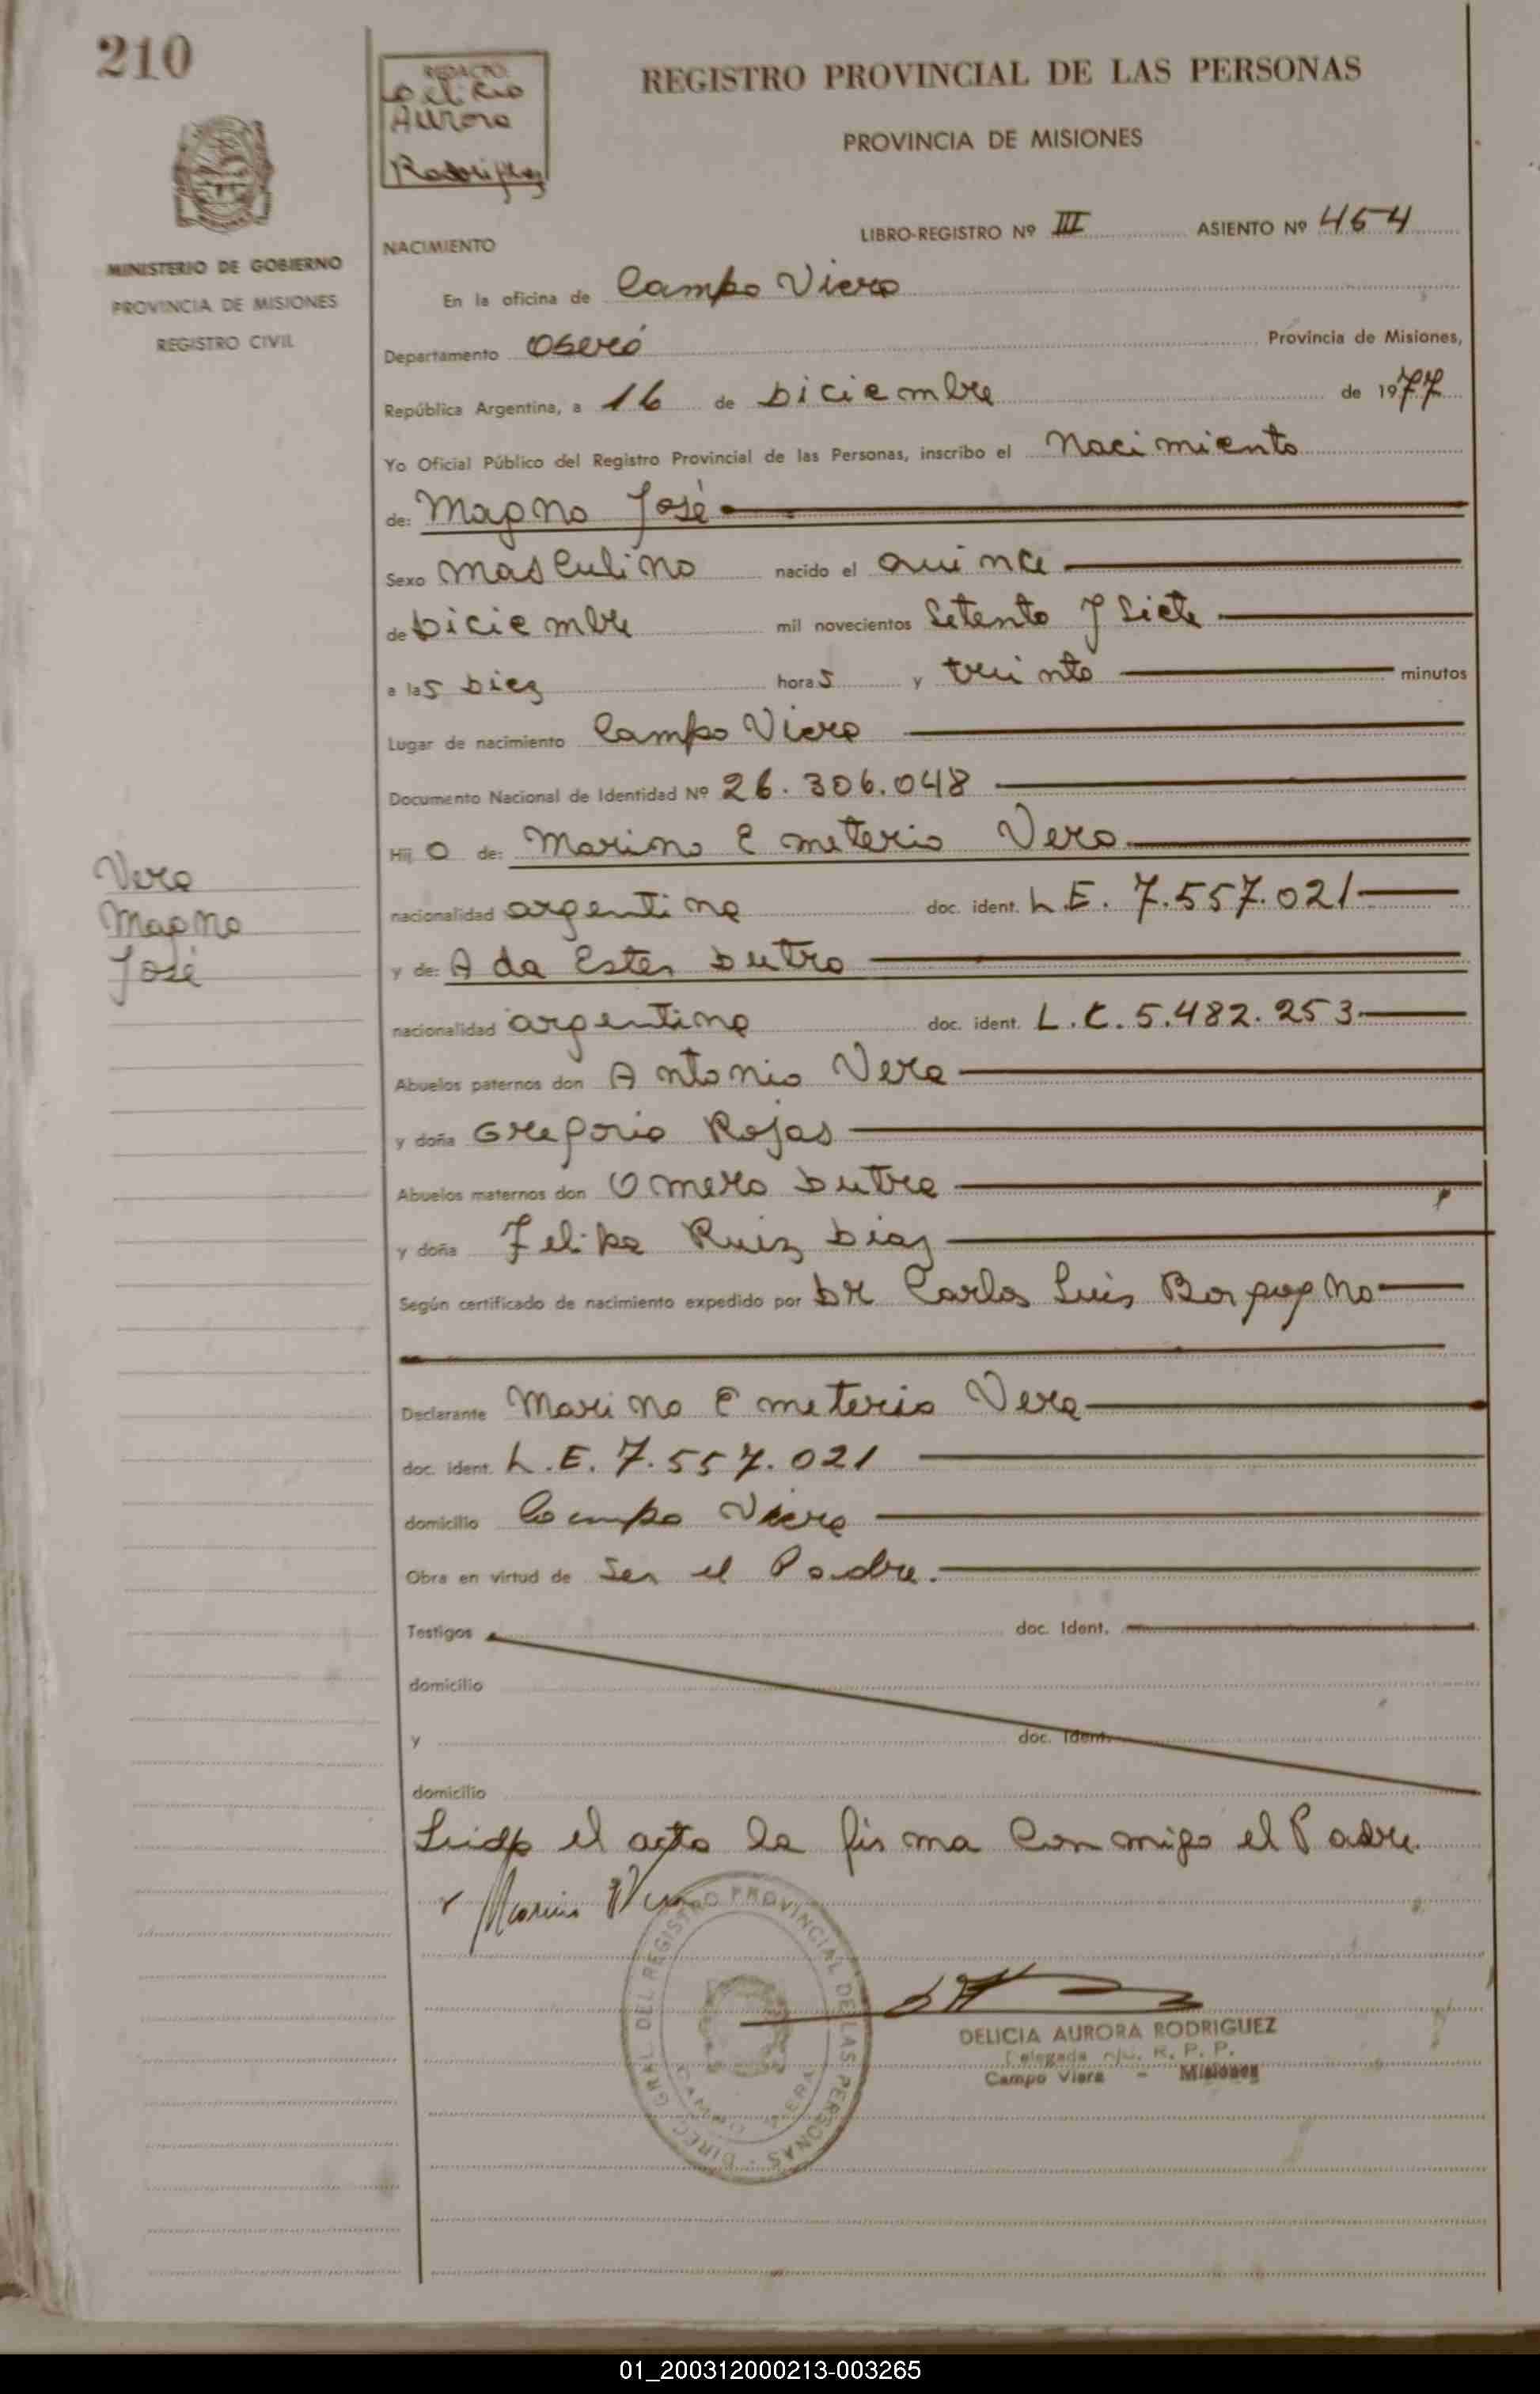 210
REDACTO:
Delicia
Aurora
Rodriguez
REGISTRO PROVINCIAL DE LAS PERSONAS
PROVINCIA DE MISIONES
MINISTERIO DE GOBIERNO
PROVINCIA DE MISIONES
REGISTRO CIVIL
NACIMIENTO
LIBRO-REGISTRO Nº III ASIENTO Nº 454
En la oficina de Campo Viera
Departamento Oberá Provincia de Misiones,
República Argentina, a 16 de Diciembre de 1977
Yo Oficial Público del Registro Provincial de las Personas, inscribo el Nacimiento
de: Magno José
Sexo Masculino nacido el Quince
de Diciembre mil novecientos Setenta y Siete
a las Diez horas y treinta minutos
Lugar de nacimiento Campo Viera
Documento Nacional de Identidad Nº 26.306.048
Hijo de: Marino Emeterio Vera
nacionalidad argentina doc. ident. L.E. 7.557.021
y de: Ada Ester Dutra
nacionalidad argentina doc. ident. L.C. 5.482.253
Abuelos paternos don Antonio Vera
y doña Gregoria Rojas
Abuelos maternos don Omero Dutra
y doña Felipa Ruiz Diaz
Según certificado de nacimiento expedido por Dr Carlos Luis
Declarante Marino Emeterio Vera
doc. ident. L.E. 7.557.021
domicilio Campo Viera
Obra en virtud de Ser el Padre.
Testigos doc. Ident.
domicilio
y doc. Ident.
domicilio
Leida el acta la firma Conmigo el Padre
Vera
Magno
José
Marino Vera
DIREC. GRAL. DEL REGISTRO PROVINCIAL DE LAS PERSONAS
CAMPO VIERA
DELICIA AURORA RODRIGUEZ
Delegada R. P. P.
Campo Viera - Misiones
01_200312000213-003265